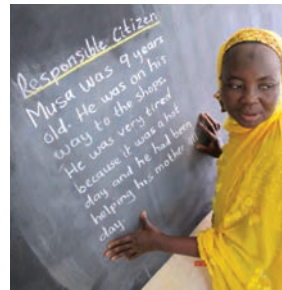 Responsible Citizen
Musa was 9 years
old. He was on his
way to the shops.
He was very tired
because it was a hot
day and he had been
helping his mother all
day.